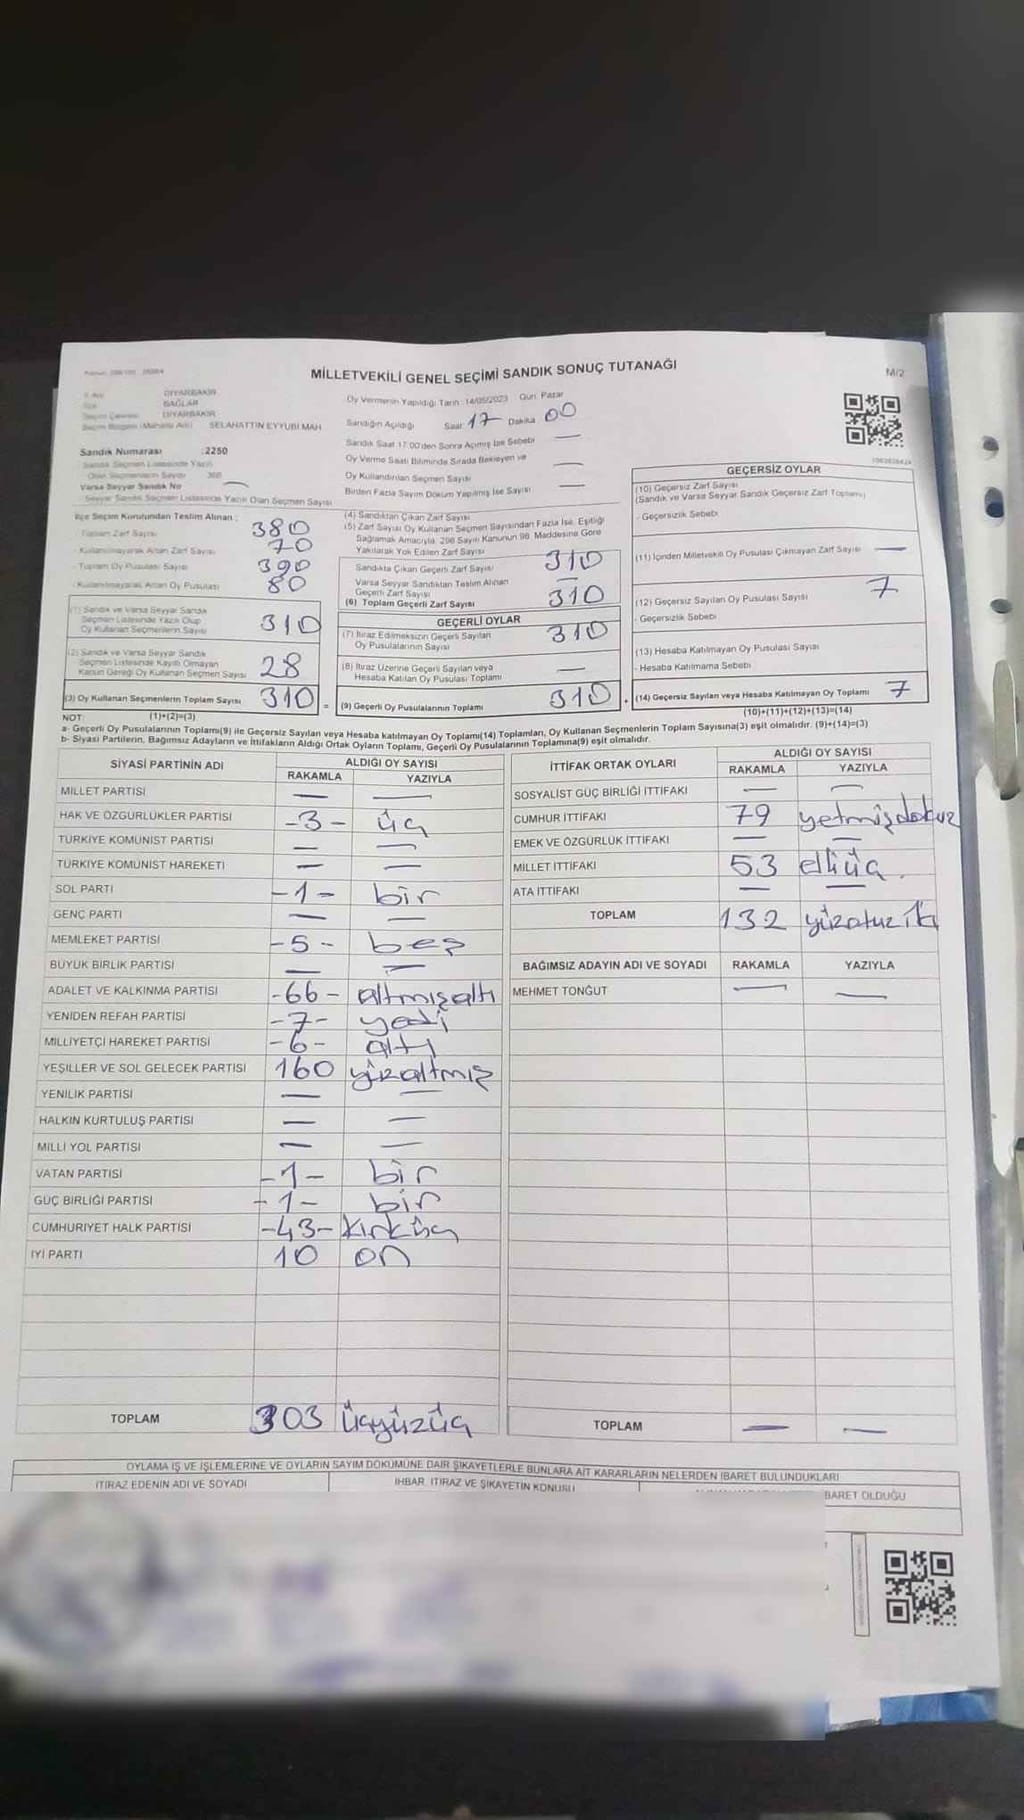 MİLLETVEKİLİ GENEL SEÇİMİ SANDIK SONUÇ TUTANAĞI
M/2
DİYARBAKIR
BAĞLAR
DİYARBAKIR
SELAHATTİN EYYUBİ MAH
Oy Vermenin Yapıldığı Tarih :14/05/2023 Gün: Pazar
Sandığın Açıldığı Saat 17 Dakika 00
Sandık Saat 17:00'den Sonra Açılmış İse Sebebi —
Oy Verme Saati Bitiminde Sırada Bekleyen ve
Oy Kullandırılan Seçmen Sayısı —
Birden Fazla Sayım Döküm Yapılmış İse Sayısı —
Sandık Numarası :2250
Sandık Seçmen Listesinde Yazılı
Olan Seçmenlerin Sayısı
Varsa Seyyar Sandık No —
Seyyar Sandık Seçmen Listesinde Yazılı Olan Seçmen Sayısı
İlçe Seçim Kurulundan Teslim Alınan :
- Toplam Zarf Sayısı 380
- Kullanılmayarak Artan Zarf Sayısı 70
- Toplam Oy Pusulası Sayısı 390
- Kullanılmayarak Artan Oy Pusulası 80
(1) Sandık ve Varsa Seyyar Sandık
Seçmen Listesinde Yazılı Olup
Oy Kullanan Seçmenlerin Sayısı 310
(2) Sandık ve Varsa Seyyar Sandık
Seçmen Listesinde Kayıtlı Olmayan
Kanun Gereği Oy Kullanan Seçmen Sayısı 28
(3) Oy Kullanan Seçmenlerin Toplam Sayısı 310 =
(4) Sandıktan Çıkan Zarf Sayısı
(5) Zarf Sayısı Oy Kullanan Seçmen Sayısından Fazla İse, Eşitliği
Sağlamak Amacıyla, 298 Sayılı Kanunun 98. Maddesine Göre
Yakılarak Yok Edilen Zarf Sayısı
Sandıkta Çıkan Geçerli Zarf Sayısı 310
Varsa Seyyar Sandıktan Teslim Alınan
Geçerli Zarf Sayısı —
(6) Toplam Geçerli Zarf Sayısı 310
GEÇERLİ OYLAR
(7) İtiraz Edilmeksizin Geçerli Sayılan
Oy Pusulalarının Sayısı 310
(8) İtiraz Üzerine Geçerli Sayılan veya
Hesaba Katılan Oy Pusulası Toplamı —
(9) Geçerli Oy Pusulalarının Toplamı 310
GEÇERSİZ OYLAR
(10) Geçersiz Zarf Sayısı
(Sandık ve Varsa Seyyar Sandık Geçersiz Zarf Toplamı)
- Geçersizlik Sebebi
(11) İçinden Milletvekili Oy Pusulası Çıkmayan Zarf Sayısı —
(12) Geçersiz Sayılan Oy Pusulası Sayısı 7
- Geçersizlik Sebebi
(13) Hesaba Katılmayan Oy Pusulası Sayısı
- Hesaba Katılmama Sebebi
(14) Geçersiz Sayılan veya Hesaba Katılmayan Oy Toplamı 7
NOT: (1)+(2)=(3)
(10)+(11)+(12)+(13)=(14)
a- Geçerli Oy Pusulalarının Toplamı(9) ile Geçersiz Sayılan veya Hesaba Katılmayan Oy Toplamı(14) Toplamları, Oy Kullanan Seçmenlerin Toplam Sayısına(3) eşit olmalıdır. (9)+(14)=(3)
b- Siyasi Partilerin, Bağımsız Adayların ve İttifakların Aldığı Ortak Oyların Toplamı, Geçerli Oy Pusulalarının Toplamına(9) eşit olmalıdır.
SİYASİ PARTİNİN ADI ALDIĞI OY SAYISI
RAKAMLA YAZIYLA
MİLLET PARTİSİ — —
HAK VE ÖZGÜRLÜKLER PARTİSİ -3- üç
TÜRKİYE KOMÜNİST PARTİSİ — —
TÜRKİYE KOMÜNİST HAREKETİ — —
SOL PARTİ -1- bir
GENÇ PARTİ — —
MEMLEKET PARTİSİ -5- beş
BÜYÜK BİRLİK PARTİSİ — —
ADALET VE KALKINMA PARTİSİ -66- altmışaltı
YENİDEN REFAH PARTİSİ -7- yedi
MİLLİYETÇİ HAREKET PARTİSİ -6- altı
YEŞİLLER VE SOL GELECEK PARTİSİ 160 yüzaltmış
YENİLİK PARTİSİ — —
HALKIN KURTULUŞ PARTİSİ — —
MİLLİ YOL PARTİSİ — —
VATAN PARTİSİ -1- bir
GÜÇ BİRLİĞİ PARTİSİ -1- bir
CUMHURİYET HALK PARTİSİ -43- kırküç
İYİ PARTİ 10 on
TOPLAM 303 üçyüzüç
İTTİFAK ORTAK OYLARI ALDIĞI OY SAYISI
RAKAMLA YAZIYLA
SOSYALİST GÜÇ BİRLİĞİ İTTİFAKI — —
CUMHUR İTTİFAKI 79 yetmişdokuz
EMEK VE ÖZGÜRLÜK İTTİFAKI — —
MİLLET İTTİFAKI 53 elliüç.
ATA İTTİFAKI — —
TOPLAM 132 yüzotuz iki
BAĞIMSIZ ADAYIN ADI VE SOYADI RAKAMLA YAZIYLA
MEHMET TONĞUT — —
TOPLAM — —
OYLAMA İŞ VE İŞLEMLERİNE VE OYLARIN SAYIM DÖKÜMÜNE DAİR ŞİKAYETLERLE BUNLARA AİT KARARLARIN NELERDEN İBARET BULUNDUKLARI
İTİRAZ EDENİN ADI VE SOYADI İHBAR, İTİRAZ VE ŞİKAYETİN KONUSU BARET OLDUĞU